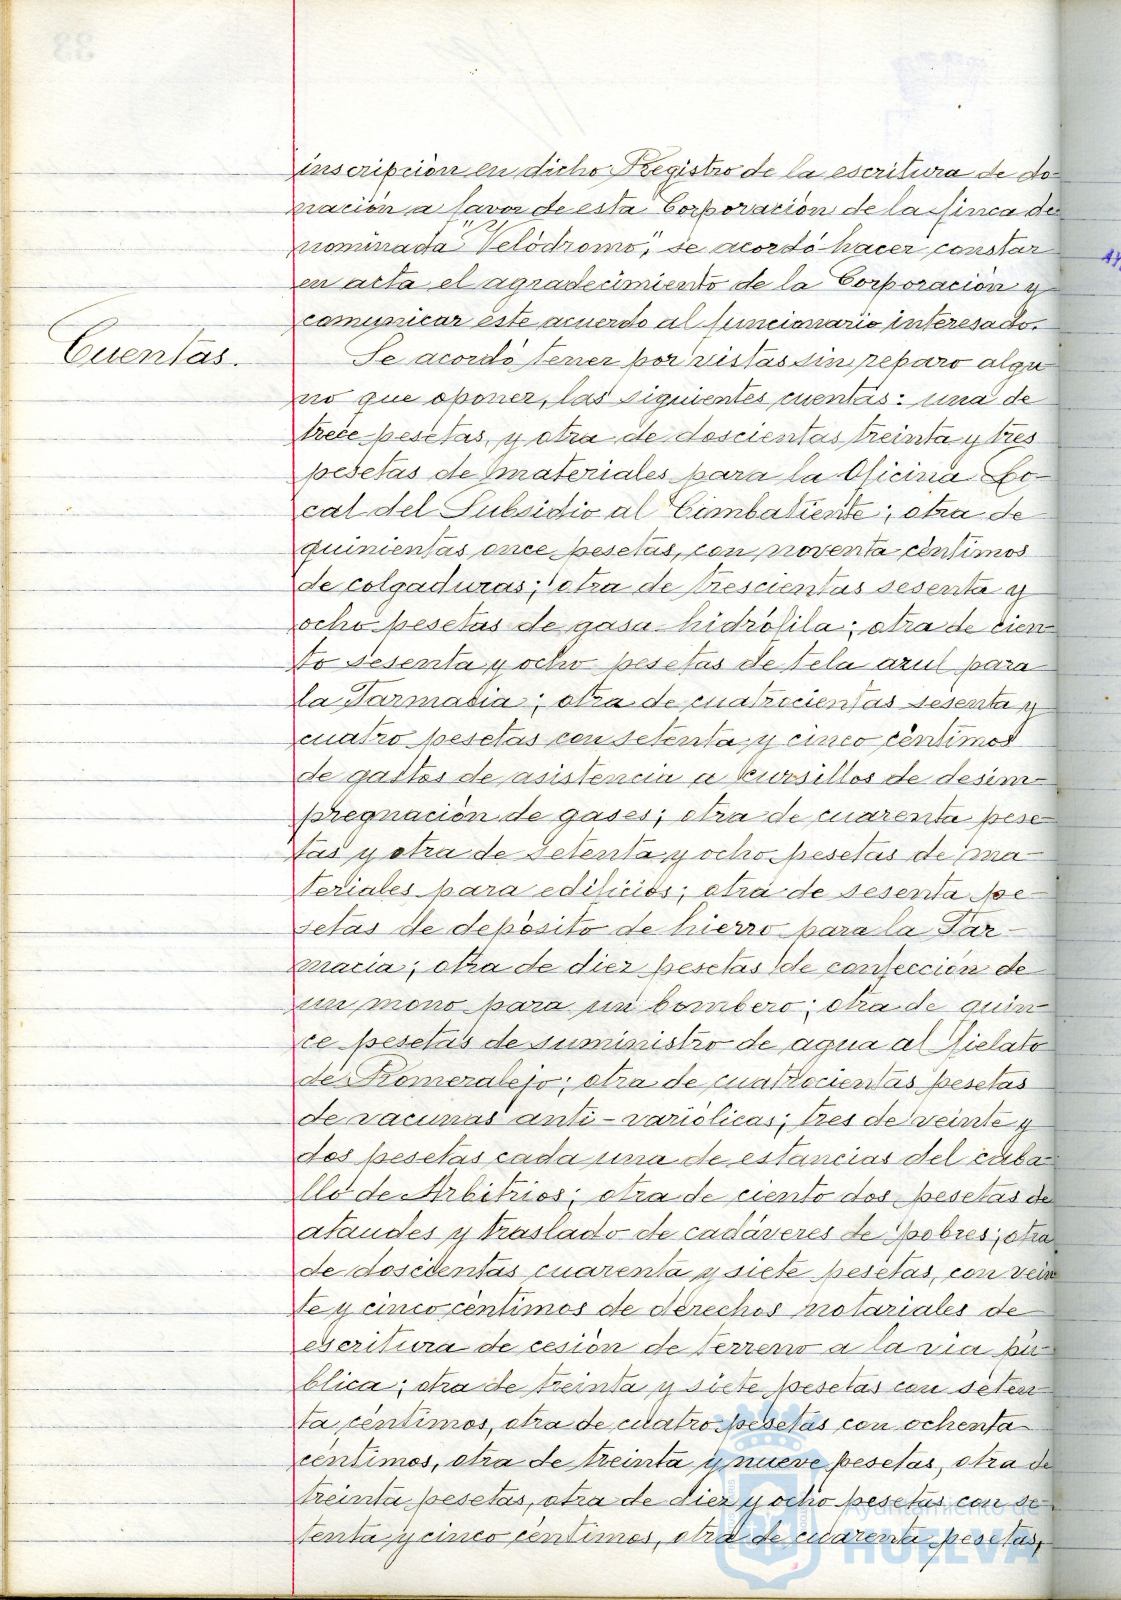 inscripción en dicho Registro de la escritura de do-
nación a favor de esta Corporación de la finca de-
nominada "Velódromo", se acordó hacer constar
en acta el agradecimiento de la Corporación y
comunicar este acuerdo al funcionario interesado.
Cuentas.
Se acordó tener por vistas sin reparo algu-
no que oponer, las siguientes cuentas: una de
trece pesetas, y otra de doscientas treinta y tres
pesetas de materiales para la Oficina Lo-
cal del Subsidio al Combatiente; otra de
quinientas once pesetas, con noventa céntimos
de colgaduras; otra de trescientas sesenta y
ocho pesetas de gasa hidrófila; otra de cien-
to sesenta y ocho pesetas de tela azul para
la Farmacia; otra de cuatrocientas sesenta y
cuatro pesetas con setenta y cinco céntimos
de gastos de asistencia a cursillos de desim-
pregnación de gases; otra de cuarenta pese-
tas y otra de setenta y ocho pesetas de ma-
teriales para edificios; otra de sesenta pe-
setas de depósito de hierro para la Far-
macia; otra de diez pesetas de confección de
un mono para un bombero; otra de quin-
ce pesetas de suministro de agua al fielato
de Romeralejo; otra de cuatrocientas pesetas
de vacunas anti-variólicas; tres de veinte y
dos pesetas cada una de estancias del caba-
llo de Arbitrios; otra de ciento dos pesetas de
ataudes y traslado de cadáveres de pobres; otra
de doscientas cuarenta y siete pesetas, con vein
te y cinco céntimos de derechos notariales de
escritura de cesión de terreno a la via pú-
blica; otra de treinta y siete pesetas con seten-
ta céntimos, otra de cuatro pesetas con ochenta
céntimos, otra de treinta y nueve pesetas, otra de
treinta pesetas, otra de diez y ocho pesetas con se-
tenta y cinco céntimos, otra de cuarenta pesetas,
Ayuntamiento de
HUELVA